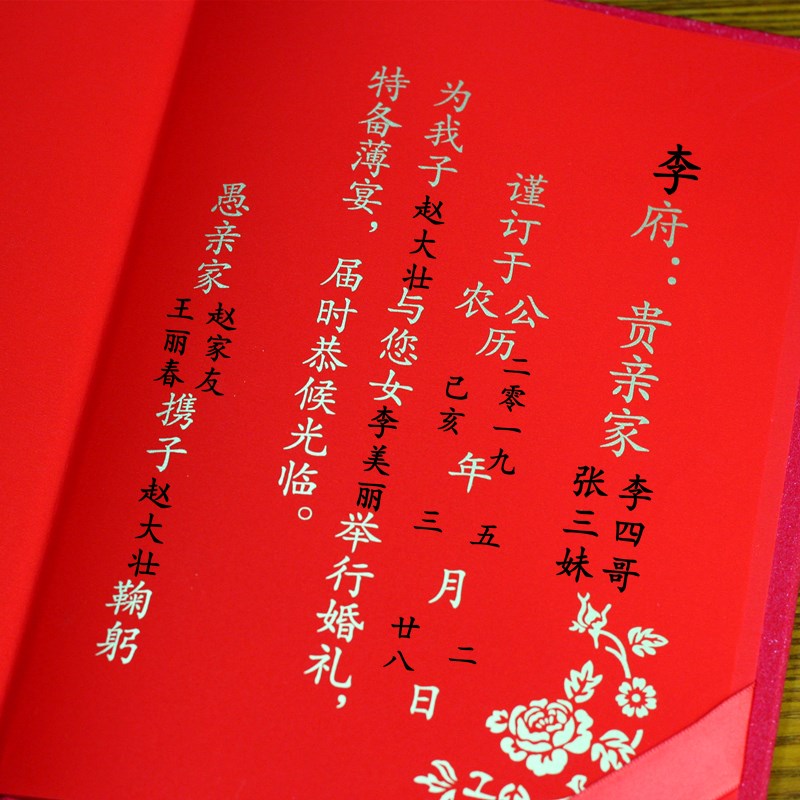 李府：贵亲家
李四哥
张三妹
谨订于公历二零一九年五月二日
农历己亥三廿八
为我子赵大壮与您女李美丽举行婚礼，
特备薄宴，届时恭候光临。
愚亲家赵家友
王丽春携子赵大壮鞠躬